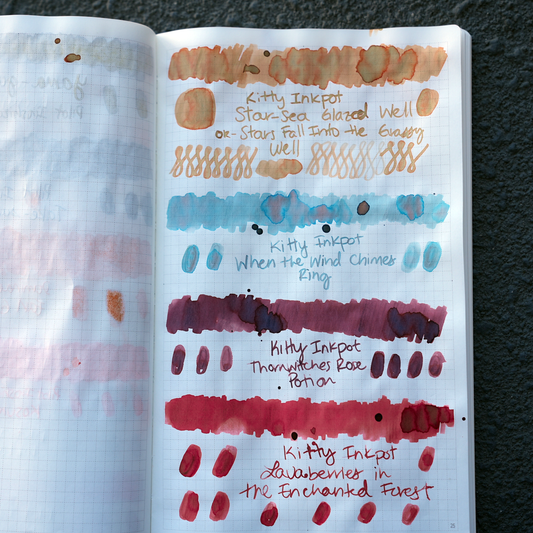 Kitty Inkpot
Star-Sea Glazed Well
or-Stars Fall Into the Glassy
Well
Kitty Inkpot
When the Wind Chimes
Ring
Kitty Inkpot
Thornwitches Rose
Potion
Kitty Inkpot
Lavaberries in
the Enchanted Forest